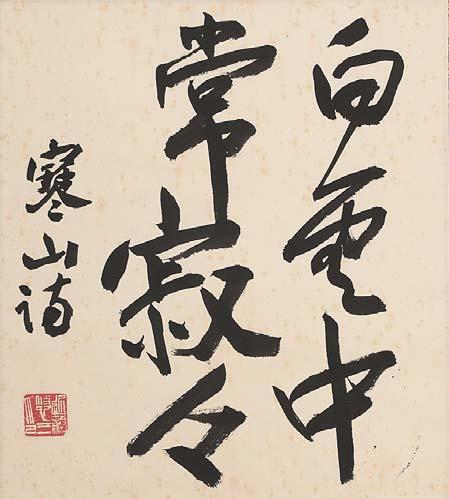 白雲中
常寂々
寒山詩